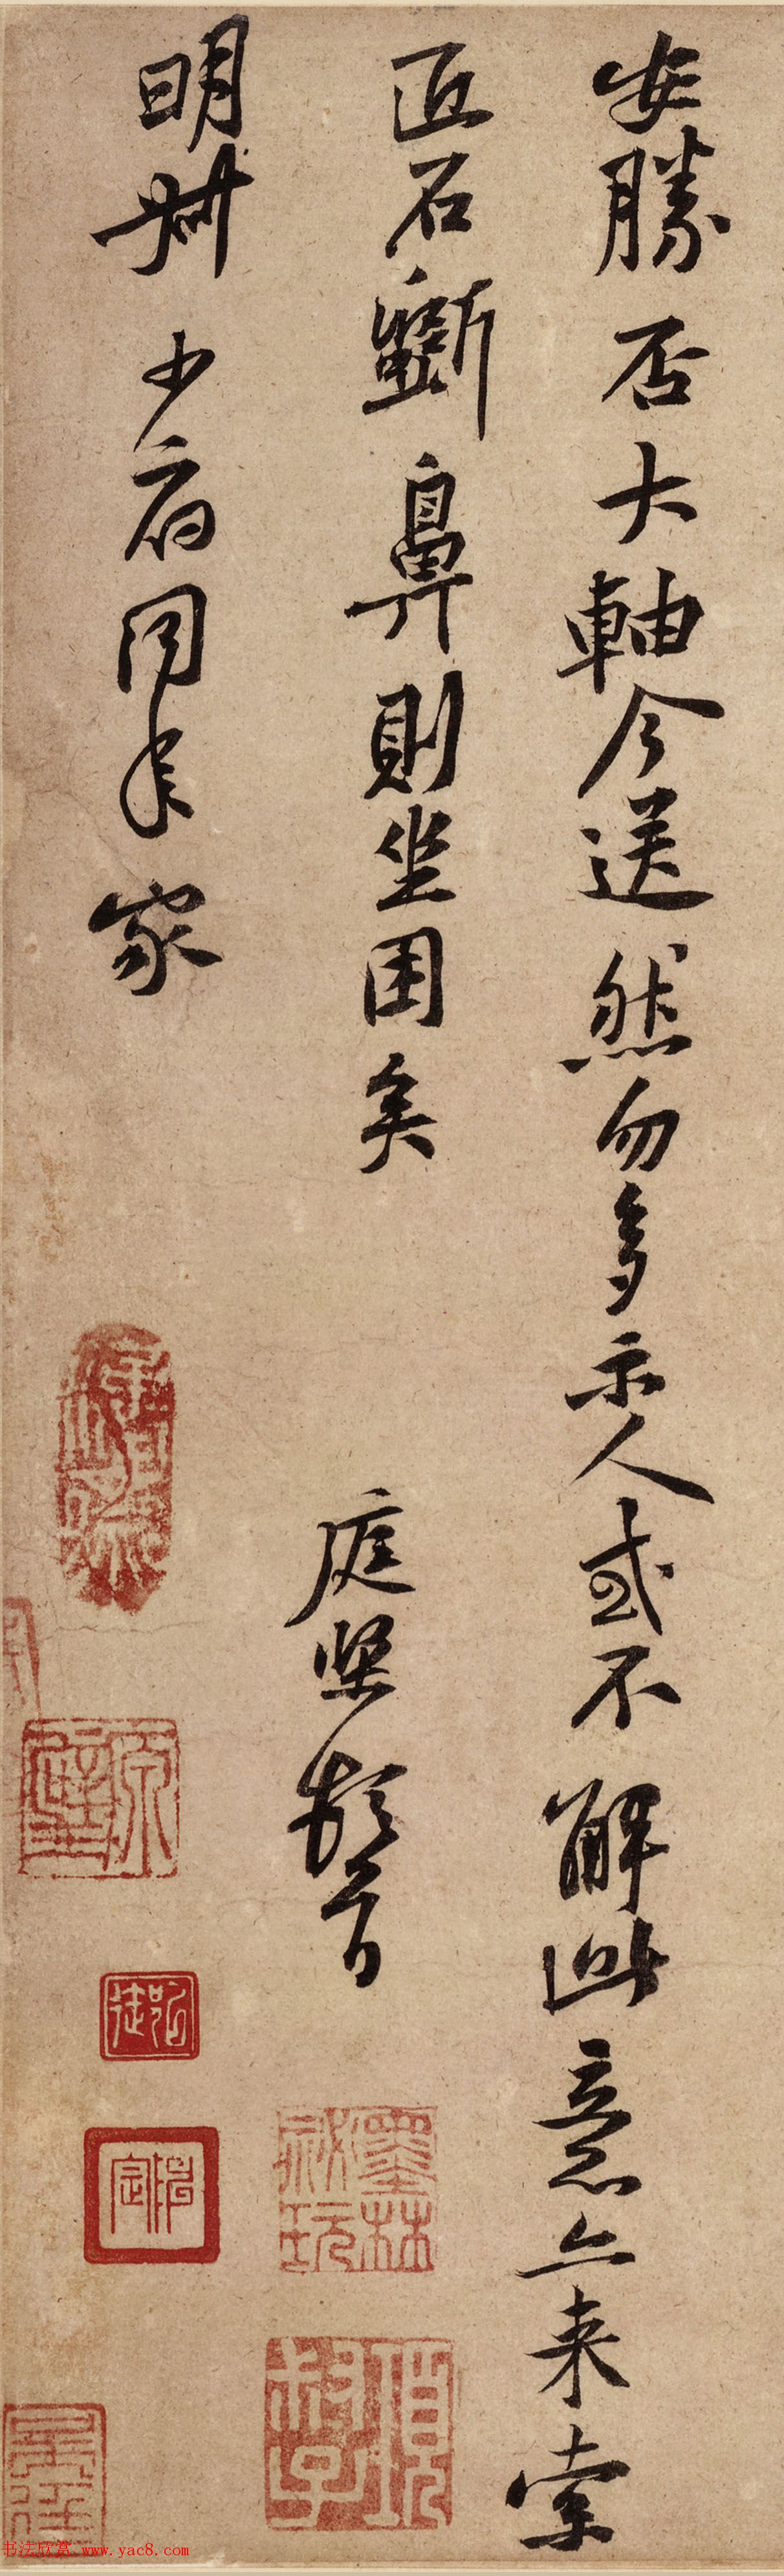 安勝否大軸今送然勿多示人或不解此意亦来索
匠石斵鼻則坐困矣
庭堅頓首
明州少府同年家
墨林秘玩
項子京
書法欣賞 www.yac8.com